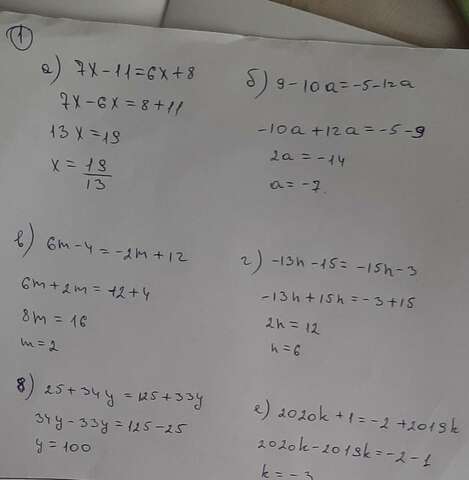 1
а) 7x-11=6x+8
7x-6x=8+11
13x=19
x=19/13
б) 9-10a=-5-12a
-10a+12a=-5-9
2a=-14
a=-7.
в) 6m-4=-2m+12
6m+2m=12+4
8m=16
m=2
г) -13n-15=-15n-3
-13n+15n=-3+15
2n=12
n=6
д) 25+34y=125+33y
34y-33y=125-25
y=100
е) 2020k+1=-2+2019k
2020k-2019k=-2-1
k=-3